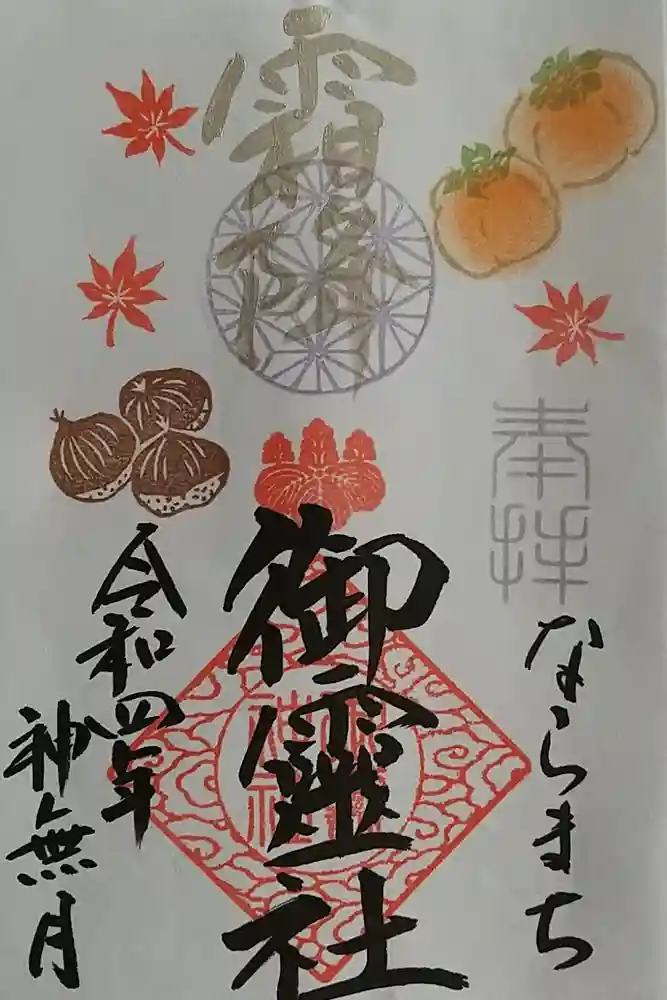 奉拝
ならまち
霜降
御霊社
令和四年
神無月